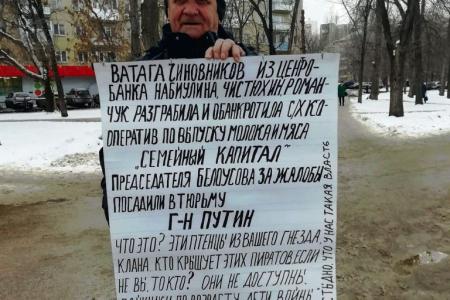 ВАТАГА ЧИНОВНИКОВ ИЗ ЦЕНТРО-
БАНКА НАБИУЛИНА, ЧИСТЮХИН, РОМАН-
ЧУК РАЗГРАБИЛА И ОБАНКРОТИЛА С/Х КО-
ОПЕРАТИВ ПО ВЫПУСКУ МОЛОКА И МЯСА
"СЕМЕЙНЫЙ КАПИТАЛ"
ПРЕДСЕДАТЕЛЯ БЕЛОУСОВА ЗА ЖАЛОБЫ
ПОСАДИЛИ В ТЮРЬМУ
Г-Н ПУТИН
ЧТО ЭТО? ЭТИ ПТЕНЦЫ ИЗ ВАШЕГО ГНЕЗДА,
КЛАНА, КТО КРЫШУЕТ ЭТИХ ПИРАТОВ, ЕСЛИ
НЕ ВЫ, ТО КТО? ОНИ НЕ ДОСТУПНЫ.
ПО ВОЗРАСТУ ДЕТИ ВОЙНЫ
СТЫДНО, ЧТО У НАС ТАКАЯ ВЛАСТЬ